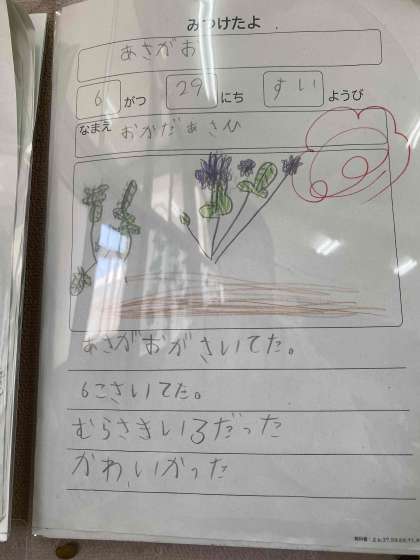 みつけたよ
あさがお
6がつ29にちすいようび
なまえ おかだあさひ
あさがおがさいてた。
6こさいてた。
むらさきいろだった
かわいかった